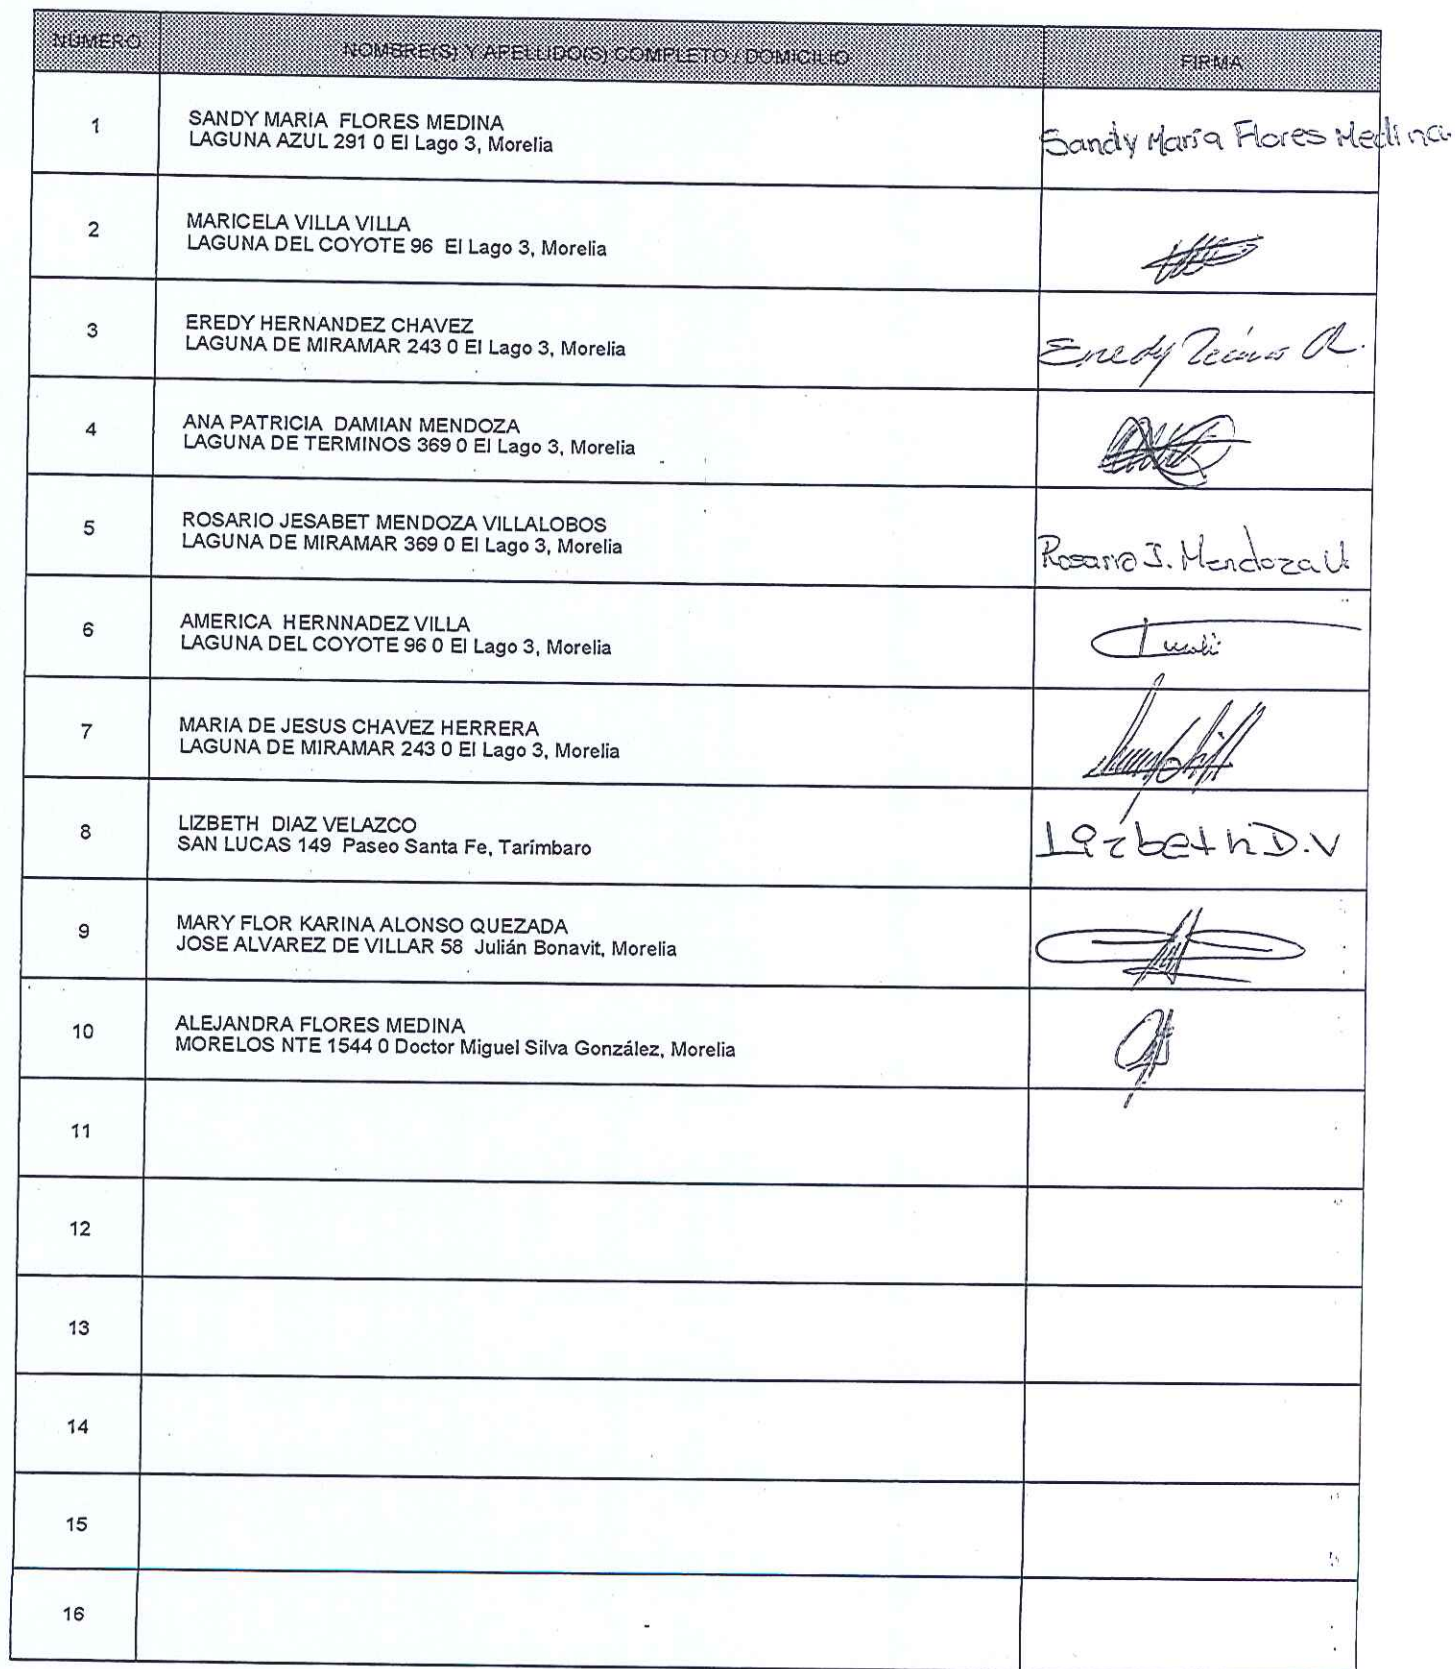 NÚMERO NOMBRE(S) Y APELLIDO(S) COMPLETO / DOMICILIO FIRMA
1 SANDY MARIA FLORES MEDINA
LAGUNA AZUL 291 0 El Lago 3, Morelia
Sandy María Flores Medina
2 MARICELA VILLA VILLA
LAGUNA DEL COYOTE 96 El Lago 3, Morelia
3 EREDY HERNANDEZ CHAVEZ
LAGUNA DE MIRAMAR 243 0 El Lago 3, Morelia
4 ANA PATRICIA DAMIAN MENDOZA
LAGUNA DE TERMINOS 369 0 El Lago 3, Morelia
5 ROSARIO JESABET MENDOZA VILLALOBOS
LAGUNA DE MIRAMAR 369 0 El Lago 3, Morelia
Rosario J. Mendoza V.
6 AMERICA HERNNADEZ VILLA
LAGUNA DEL COYOTE 96 0 El Lago 3, Morelia
7 MARIA DE JESUS CHAVEZ HERRERA
LAGUNA DE MIRAMAR 243 0 El Lago 3, Morelia
8 LIZBETH DIAZ VELAZCO
SAN LUCAS 149 Paseo Santa Fe, Tarímbaro
Lizbeth D.V
9 MARY FLOR KARINA ALONSO QUEZADA
JOSE ALVAREZ DE VILLAR 58 Julián Bonavit, Morelia
10 ALEJANDRA FLORES MEDINA
MORELOS NTE 1544 0 Doctor Miguel Silva González, Morelia
11
12
13
14
15
16